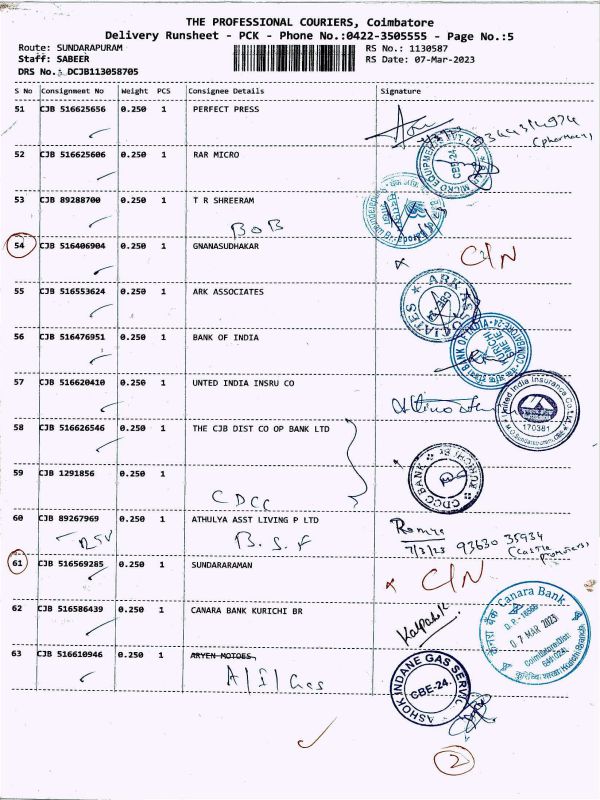 THE PROFESSIONAL COURIERS, Coimbatore
Delivery Runsheet - PCK - Phone No.:0422-3505555 - Page No.:5
Route: SUNDARAPURAM RS No.: 1130587
Staff: SABEER RS Date: 07-Mar-2023
DRS No.: DCJB113058705
S No Consignment No Weight PCS Consignee Details Signature
51 CJB 516625656 0.250 1 PERFECT PRESS
(pharmacy)
52 CJB 516625606 0.250 1 RAR MICRO
CBE-24
53 CJB 89288700 0.250 1 T R SHREERAM
BOB
54 CJB 516406904 0.250 1 GNANASUDHAKAR
C/N
55 CJB 516553624 0.250 1 ARK ASSOCIATES
ARK ASSOCIATES
56 CJB 516476951 0.250 1 BANK OF INDIA
BANK OF INDIA
57 CJB 516620410 0.250 1 UNTED INDIA INSRU CO
United India Insurance Co. Ltd.
170381
58 CJB 516626546 0.250 1 THE CJB DIST CO OP BANK LTD
59 CJB 1291856 0.250 1
CDCC
CDCC BANK KURICHI Br
60 CJB 89267969 0.250 1 ATHULYA ASST LIVING P LTD
RSV B.S.F
7/3/23 93630 35934
61 CJB 516569285 0.250 1 SUNDARARAMAN
C/N
62 CJB 516586439 0.250 1 CANARA BANK KURICHI BR
Canara Bank
07 MAR 2023
63 CJB 516610946 0.250 1 ARYEN MOTOES
A/I/Gas
ASHOK INDANE GAS SERVICE
CBE-24.
2